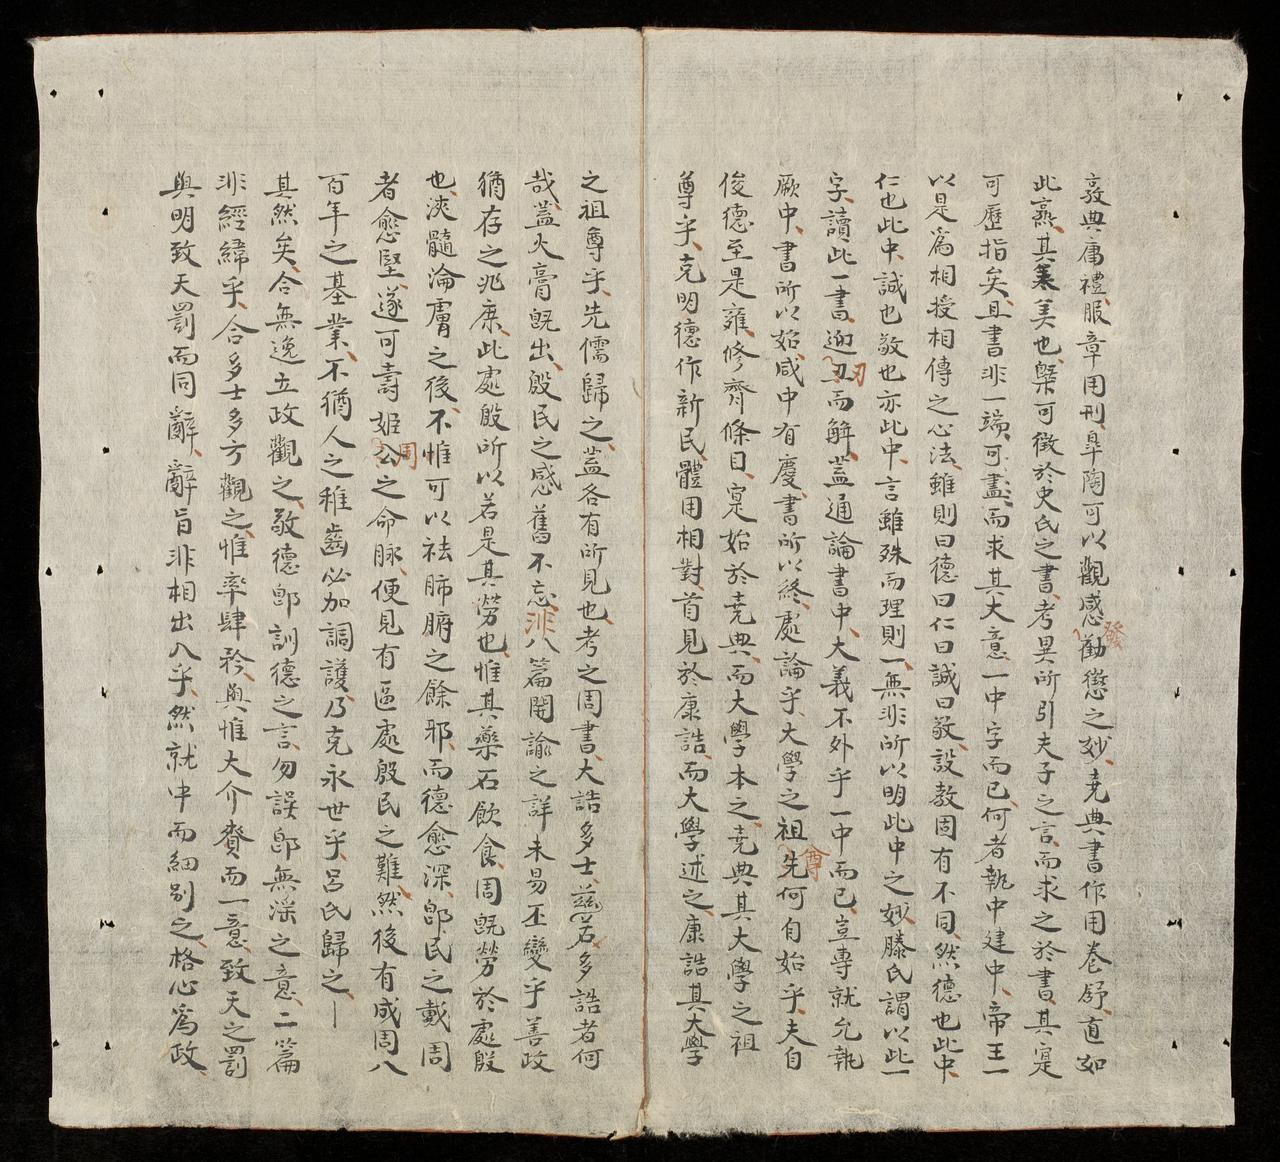 敦典庸禮服章用刑皐陶可以觀感勸懲之妙堯典書作用卷舒直如
發
此燕其美也槩可徵於史氏之書考異所引夫子之言而求之於書其寔
可歷指矣且書非一端可盡而求其大意一中字而已何者執中建中帝王一
以是爲相授相傳之心法雖則曰德曰仁曰誠曰敬設教固有不同然德也此中
仁也此中誠也敬也亦此中言雖殊而理則一無非所以明此中之妙滕氏謂以此一
字讀此一書迎刃而解蓋通論書中大義不外乎一中而已豈專就允執
刃
厥中書所以始咸中有慶書所以終處論乎大學之祖先何自始乎夫自
尊
俊德至是雍修齊條目寔始於堯典而大學本之堯典其大學之祖
尊乎克明德作新民體用相對首見於康誥而大學述之康誥其大學
之祖尊乎先儒歸之蓋各有所見也考之周書大誥多士茲若多誥者何
哉蓋火膏旣出殷民之感舊不忘非八篇開諭之詳未易丕變乎善政
猶存之兆庶此處殷所以若是其勞也惟其藥石飲食周旣勞於處殷
也浹髓淪膚之後不惟可以祛肺腑之餘邪而德愈深卽民之戴周
者愈堅遂可壽姬公之命脉便見有區處殷民之難然後有成周八
周
百年之基業不猶人之稚齒必加調護乃克永世乎呂氏歸之
其然矣合無逸立政觀之敬德卽訓德之言勿誤卽無淫之意二篇
非經緯乎合多士多方觀之惟率肆矜與惟大介賚而一意致天之罰
與明致天罰而同辭辭旨非相出入乎然就中而細別之格心爲政